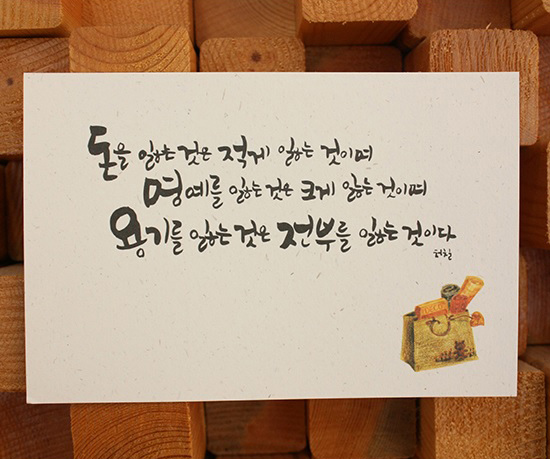 돈을 잃는 것은 적게 잃는 것이며
명예를 잃는 것은 크게 잃는 것이며
용기를 잃는 것은 전부를 잃는 것이다